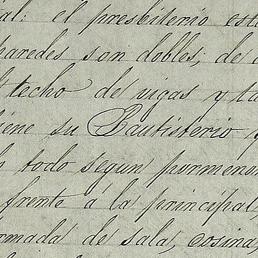 ial: el presbiterio est
paredes son dobles, de
l techo de vigas y ta
iene su Bautisterio y
n todo segun pormeno
frente á la principal,
rmada de sala, cosina,